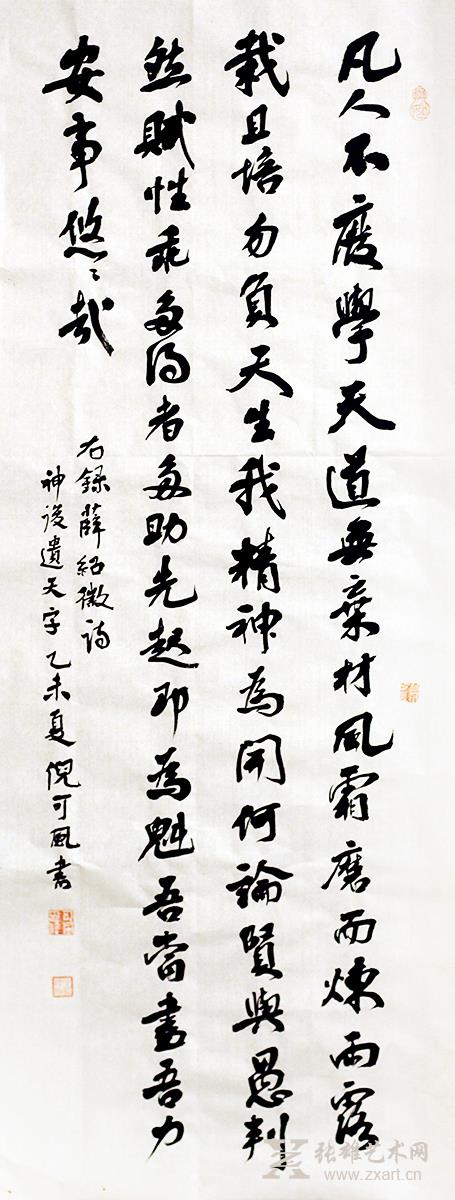 凡人不廢學天道無棄材風霜磨而煉雨露
栽且培勿負天生我精神為開何論賢與愚判
然賦性乖多得者多助先起即為魁吾當盡吾力
安事悠々哉
右録薛紹徽詩
神後遺天字乙未夏倪可風書
张雄艺术网
www.zxart.cn